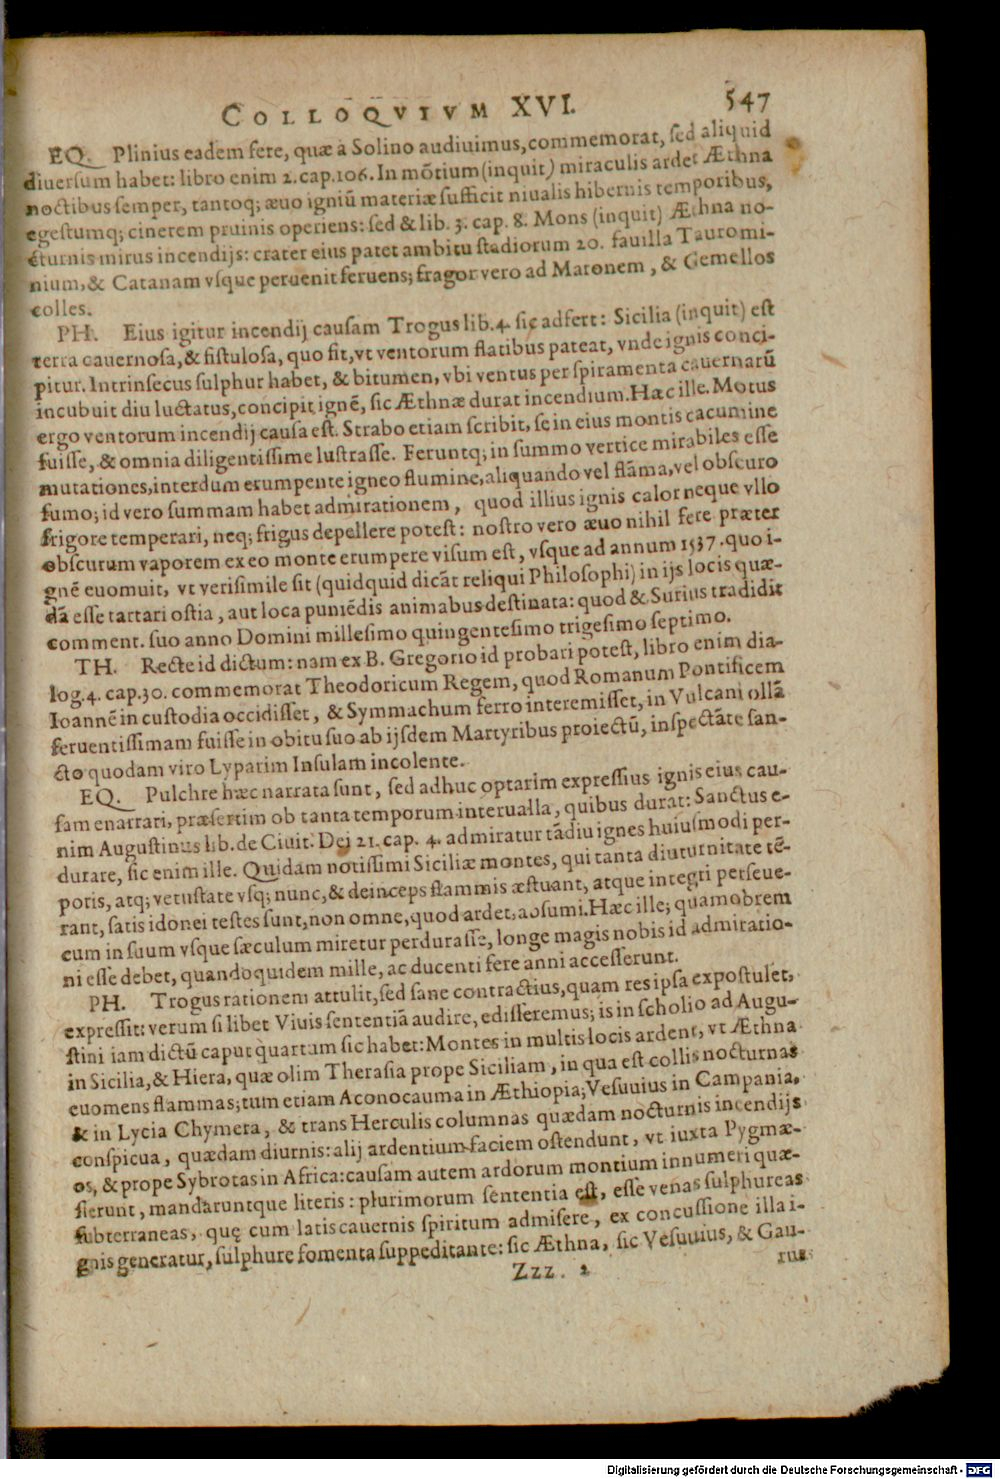 COLLOQVIVM XVI. 547
EQ. Plinius eadem fere, quæ a Solino audiuimus, commemorat, sed aliquid
diuersum habet: libro enim 2. cap. 106. In mõtium (inquit) miraculis ardet Æthna
noctibus semper, tantoq; æuo igniũ materiæ sufficit niualis hibernis temporibus,
egestumq; cinerem pruinis operiens: sed & lib. 3. cap. 8. Mons (inquit) Æthna no-
cturnis mirus incendijs: crater eius patet ambitu stadiorum 20. fauilla Tauromi-
nium, & Catanam vsque peruenit feruens; fragor vero ad Maronem, & Gemellos
colles.
PH. Eius igitur incendij causam Trogus lib. 4. sic adfert: Sicilia (inquit) est
terra cauernosa, & fistulosa, quo fit, vt ventorum flatibus pateat, vnde ignis conci-
pitur. Intrinsecus sulphur habet, & bitumen, vbi ventus per spiramenta cauernarũ
incubuit diu luctatus, concipit ignẽ, sic Æthnæ durat incendium. Hæc ille. Motus
ergo ventorum incendij causa est. Strabo etiam scribit, se in eius montis cacumine
fuisse, & omnia diligentissime lustrasse. Feruntq; in summo vertice mirabiles esse
mutationes, interdum erumpente igneo flumine, aliquando vel flãma, vel obscuro
fumo; id vero summam habet admirationem, quod illius ignis calor neque vllo
frigore temperari, neq; frigus depellere potest: nostro vero æuo nihil fere præter
obscurum vaporem ex eo monte erumpere visum est, vsque ad annum 1537. quo i-
gnẽ euomuit, vt verisimile sit (quidquid dicãt reliqui Philosophi) in ijs locis quæ-
dã esse tartari ostia, aut loca puniẽdis animabus destinata: quod & Surius tradidit
comment. suo anno Domini millesimo quingentesimo trigesimo septimo.
TH. Recte id dictum: nam ex B. Gregorio id probari potest, libro enim dia-
log. 4. cap. 30. commemorat Theodoricum Regem, quod Romanum Pontificem
Ioannẽ in custodia occidisset, & Symmachum ferro interemisset, in Vulcani ollã
feruentissimam fuisse in obitu suo ab ijsdem Martyribus proiectũ, inspectãte san-
cto quodam viro Lyparim Insulam incolente.
EQ. Pulchre hæc narrata sunt, sed adhuc optarim expressius ignis eius cau-
sam enarrari, præsertim ob tanta temporum interualla, quibus durat: Sanctus e-
nim Augustinus lib. de Ciuit. Dei 21. cap. 4. admiratur tãdiu ignes huiusmodi per-
durare, sic enim ille. Quidam notissimi Siciliæ montes, qui tanta diuturnitate tẽ-
poris, atq; vetustate vsq; nunc, & deinceps flammis æstuant, atque integri perseue-
rant, satis idonei testes sunt, non omne, quod ardet, absumi. Hæc ille; quamobrem
cum in suum vsque sæculum miretur perdurasse, longe magis nobis id admiratio-
ni esse debet, quandoquidem mille, ac ducenti fere anni accesserunt.
PH. Trogus rationem attulit, sed sane contractius, quam res ipsa expostulet,
expressit: verum si libet Viuis sententiã audire, edisseremus; is in scholio ad Augu-
stini iam dictũ caput quartum sic habet: Montes in multis locis ardent, vt Æthna
in Sicilia, & Hiera, quæ olim Therasia prope Siciliam, in qua est collis nocturnas
euomens flammas; tum etiam Aconocauma in Æthiopia; Vesuuius in Campania,
& in Lycia Chymera, & trans Herculis columnas quædam nocturnis incendijs
conspicua, quædam diurnis: alij ardentium faciem ostendunt, vt iuxta Pygmæ-
os, & prope Sybrotas in Africa: causam autem ardorum montium innumeri quæ-
sierunt, mandaruntque literis: plurimorum sententia est, esse venas sulphureas
subterraneas, quę cum latis cauernis spiritum admisere, ex concussione illa i-
gnis generatur, sulphure fomenta suppeditante: sic Æthna, sic Vesuuius, & Gau-
Zzz. 2 rus
Digitalisierung gefördert durch die Deutsche Forschungsgemeinschaft - DFG